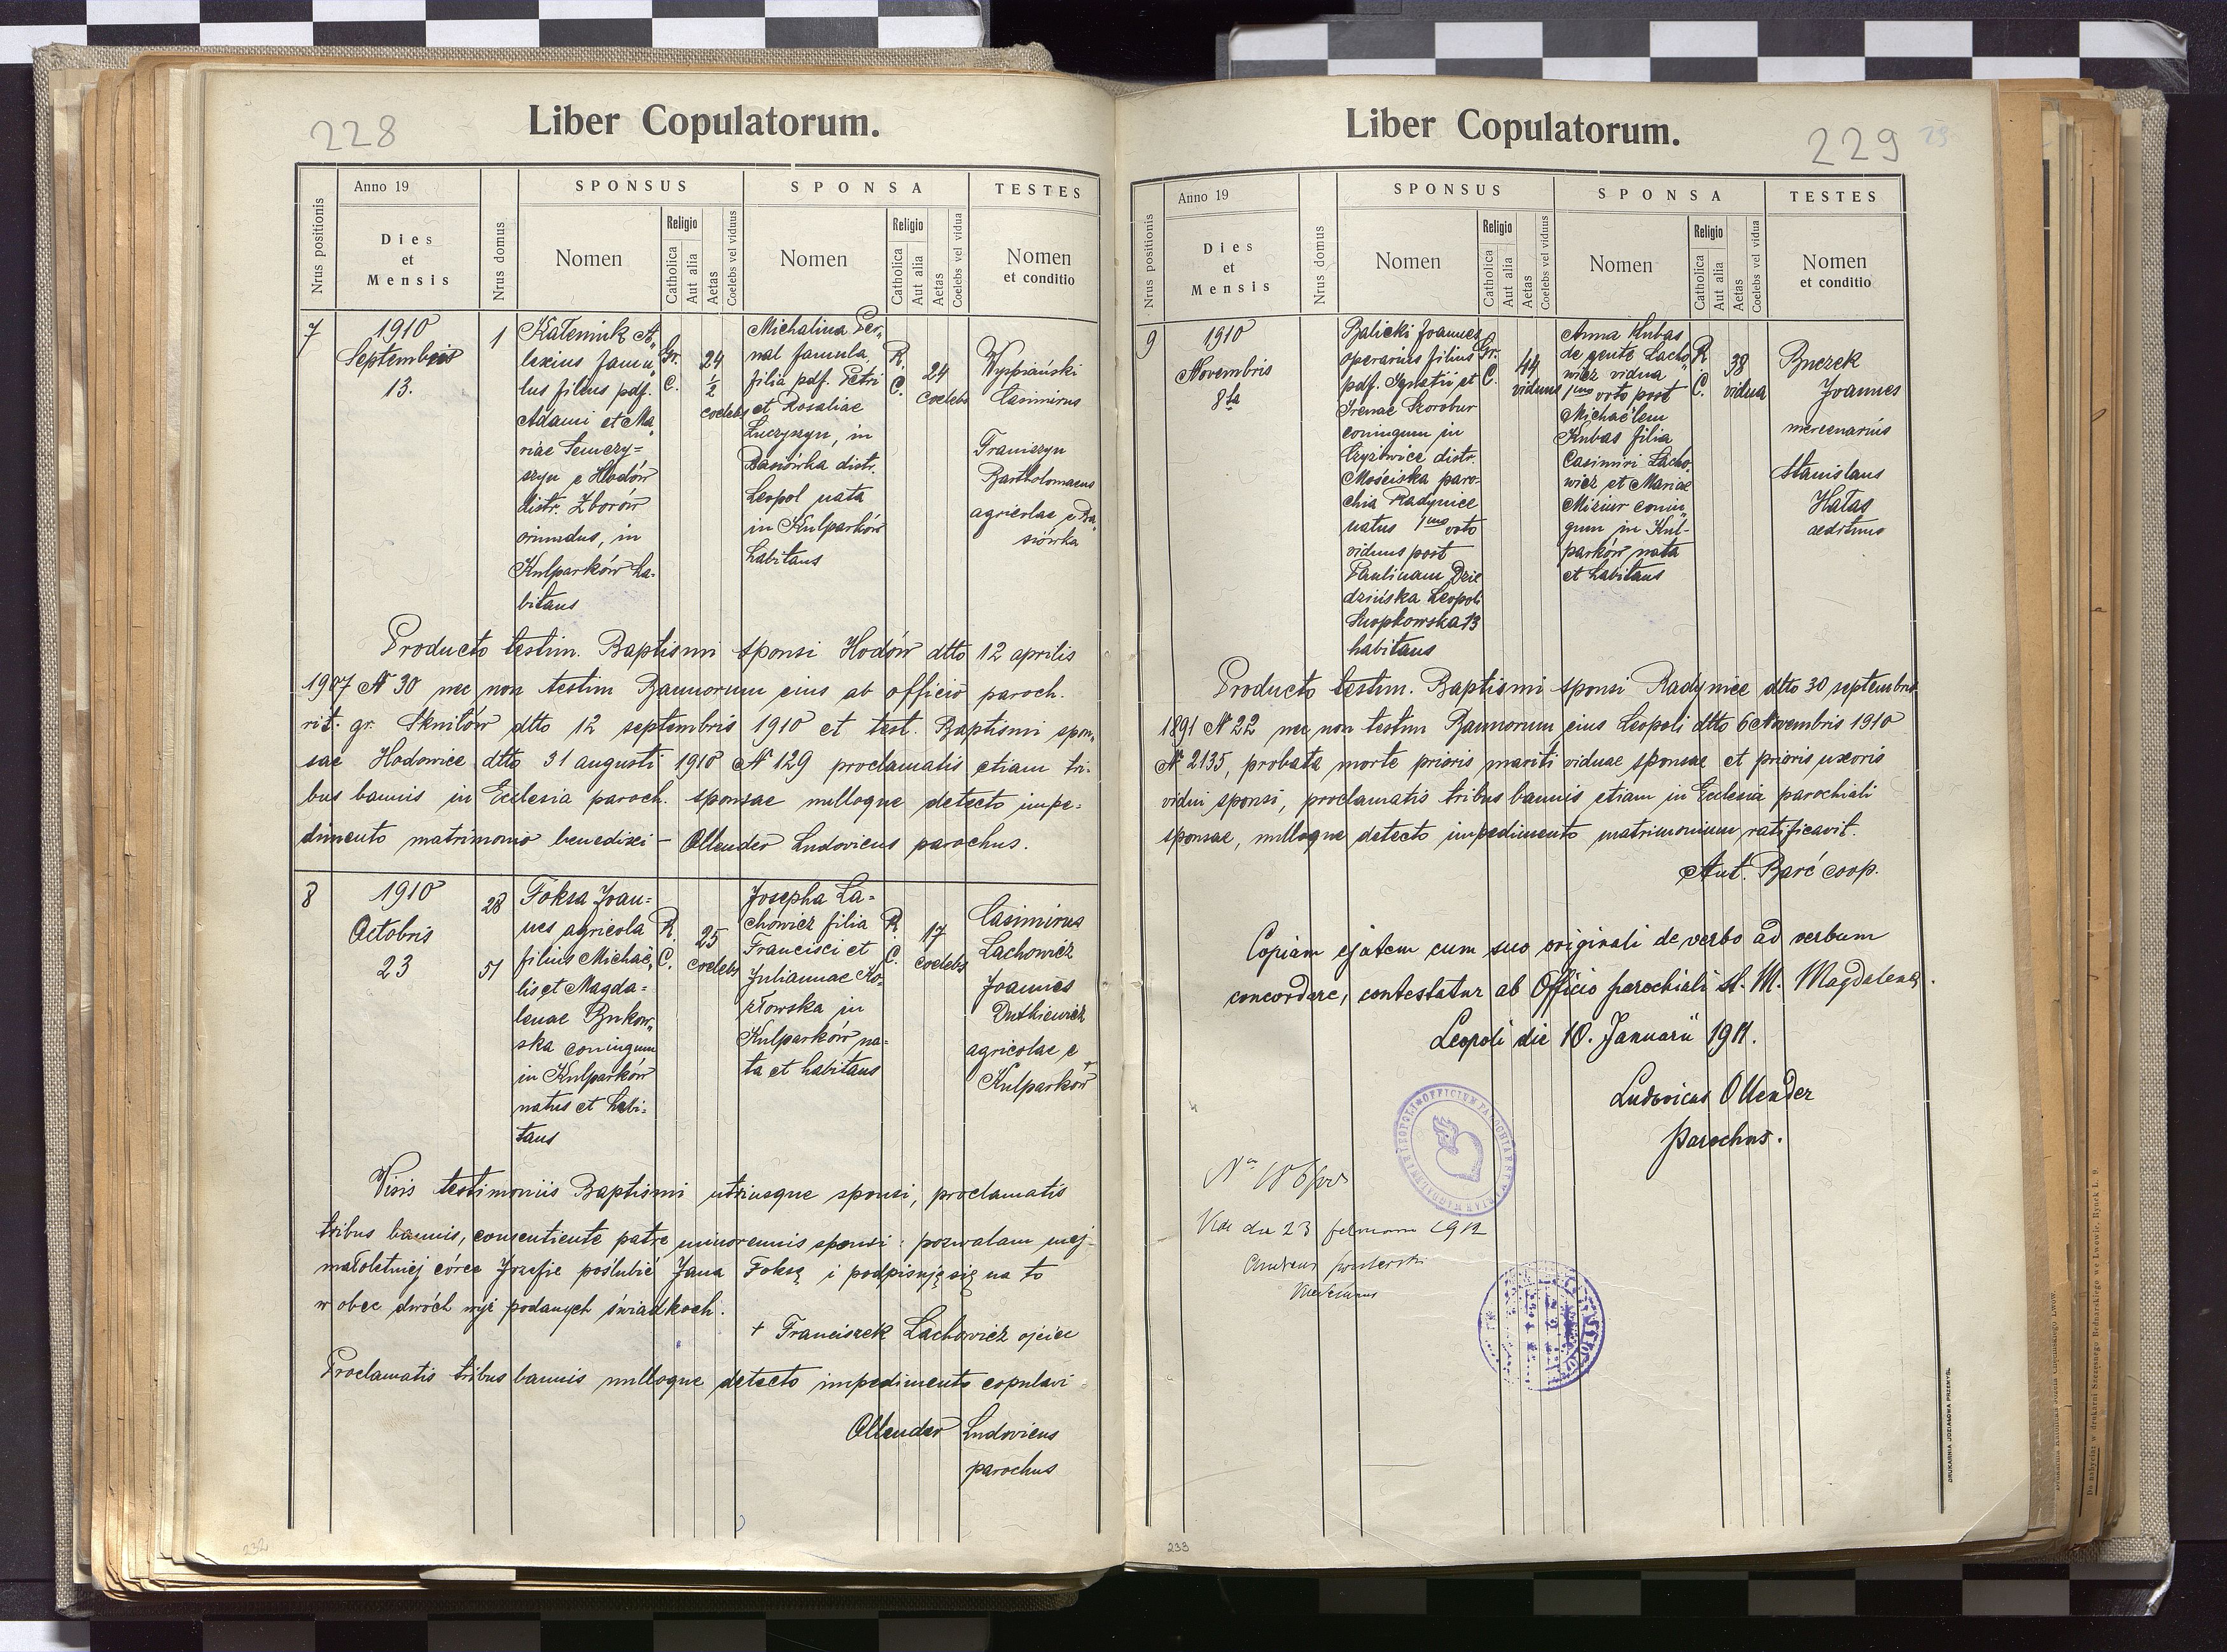 228
Liber Copulatorum.
Nrus positionis
Anno 19
Dies
et
Mensis
Nrus domus
SPONSUS
Nomen
Religio
Catholica
Aut alia
Aetas
Coelebs vel viduus
SPONSA
Nomen
Religio
Catholica
Aut alia
Aetas
Coelebs vel vidua
TESTES
Nomen
et conditio
7
1910
Septembris
13.
1
Katemiuk A„
lexius famu„
lus filius pdf.
Adami et Ma„
riae Semczy=
szyn e Hodów
distr. Zborów
oriundus, in
Kulparków ha-
bitans
Gr.
C.
24
1/2
coelebs
Michalina Per„
nal famula,
filia pdf. Petri
et Rosaliae
Luczyszyn, in
Basiówka distr.
Leopol nata
in Kulparków
habitans
R.
C.
24
coelebs
Wyspiański
Casimirus
Franiszyn
Bartholomaeus
agricolae e Ba„
siówka
Producto testim. Baptismi sponsi Hodów dtto 12 aprilis
1907 N 30 nec non testim Bannorum eius ab officio paroch.
rit. gr. Sknilów dtto 12 septembris 1910 et test. Baptismi spon„
sae Hodowice dtto 31 augusti 1910 N 129 proclamatis etiam tri-
bus bannis in Ecclesia paroch. sponsae nulloque detecto impe-
dimento matrimonio benedixi – Ollender Ludovicus parochus.
8
1910
Octobris
23
28
51
Foksa Joan=
nes agricola
filius Michaë„
lis et Magda=
lenae Bukow„
ska coniugum
in Kulparków
natus et habi=
tans
R.
C.
25
coelebs
Josepha La=
chowicz filia
Francisci et
Juliannae Ko-
złowska in
Kulparków na-
ta et habitans
R.
C.
17
coelebs
Casimirus
Lachowicz
Joannes
Dutkiewicz
agricolae e
Kulparków
Visis testimoniis Baptismi utriusque sponsi, proclamatis
tribus bannis, consentiente patre minorennis sponsi: pozwalam mej
małoletniej córce Józefie poślubić Jana Foksę i podpisuję się na to
w obec dwóch wyż podanych świadkoch.
+ Franciszek Lachowicz ojciec
Proclamatis tribus bannis nulloque detecto impedimento copulavi
Ollender Ludovicus
parochus
232
229
Liber Copulatorum.
Nrus positionis
Anno 19
Dies
et
Mensis
Nrus domus
SPONSUS
Nomen
Religio
Catholica
Aut alia
Aetas
Coelebs vel viduus
SPONSA
Nomen
Religio
Catholica
Aut alia
Aetas
Coelebs vel vidua
TESTES
Nomen
et conditio
9
1910
Novembris
8va
Balicki Joannes
operarius filius
pdf. Ignatii et
Irenae Skorobur
coniugum in
Czyżowice distr.
Mościska paro-
chia Radynice
natus 1mo voto
viduus post
Paulinam Dzie
dzińska Leopoli
Snopkowska 13
habitans
Gr.
C.
44
viduus
Anna Kubas
de gente Lacho„
wicz vidua
1mo voto post
Michaëlem
Kubas filia
Casimiri Lacho
wicz et Mariae
Miziur coniu„
gum in Kul-
parków nata
et habitans
R.
C.
38
vidua
Buczek
Joannes
mercenarius
Stanislaus
Hałas
aedituus
Producto testim. Baptismi sponsi Radynice dtto 30 septembris
1891 N 22 nec non testim Bannorum eius Leopoli dtto 6 Novembris 1910
N 2135, probata morte prioris mariti viduae sponsae et prioris uxoris
vidui sponsi, proclamatis tribus bannis etiam in Ecclesia parochiali
sponsae, nulloque detecto impedimento matrimonium ratificavit.
Ant. Barć coop.
Copiam ejatem cum suo originali de verbo ad verbum
concordare, contestatur ab Officio parochiali st. M. Magdalenae.
Leopoli die 10. Januarii 1911.
Ludovicus Ollender
parochus.
OFFICIUM PAROCHIALE
23 februarii 1912
233
DRUKARNIA UDZIAŁOWA PRZEMYŚL